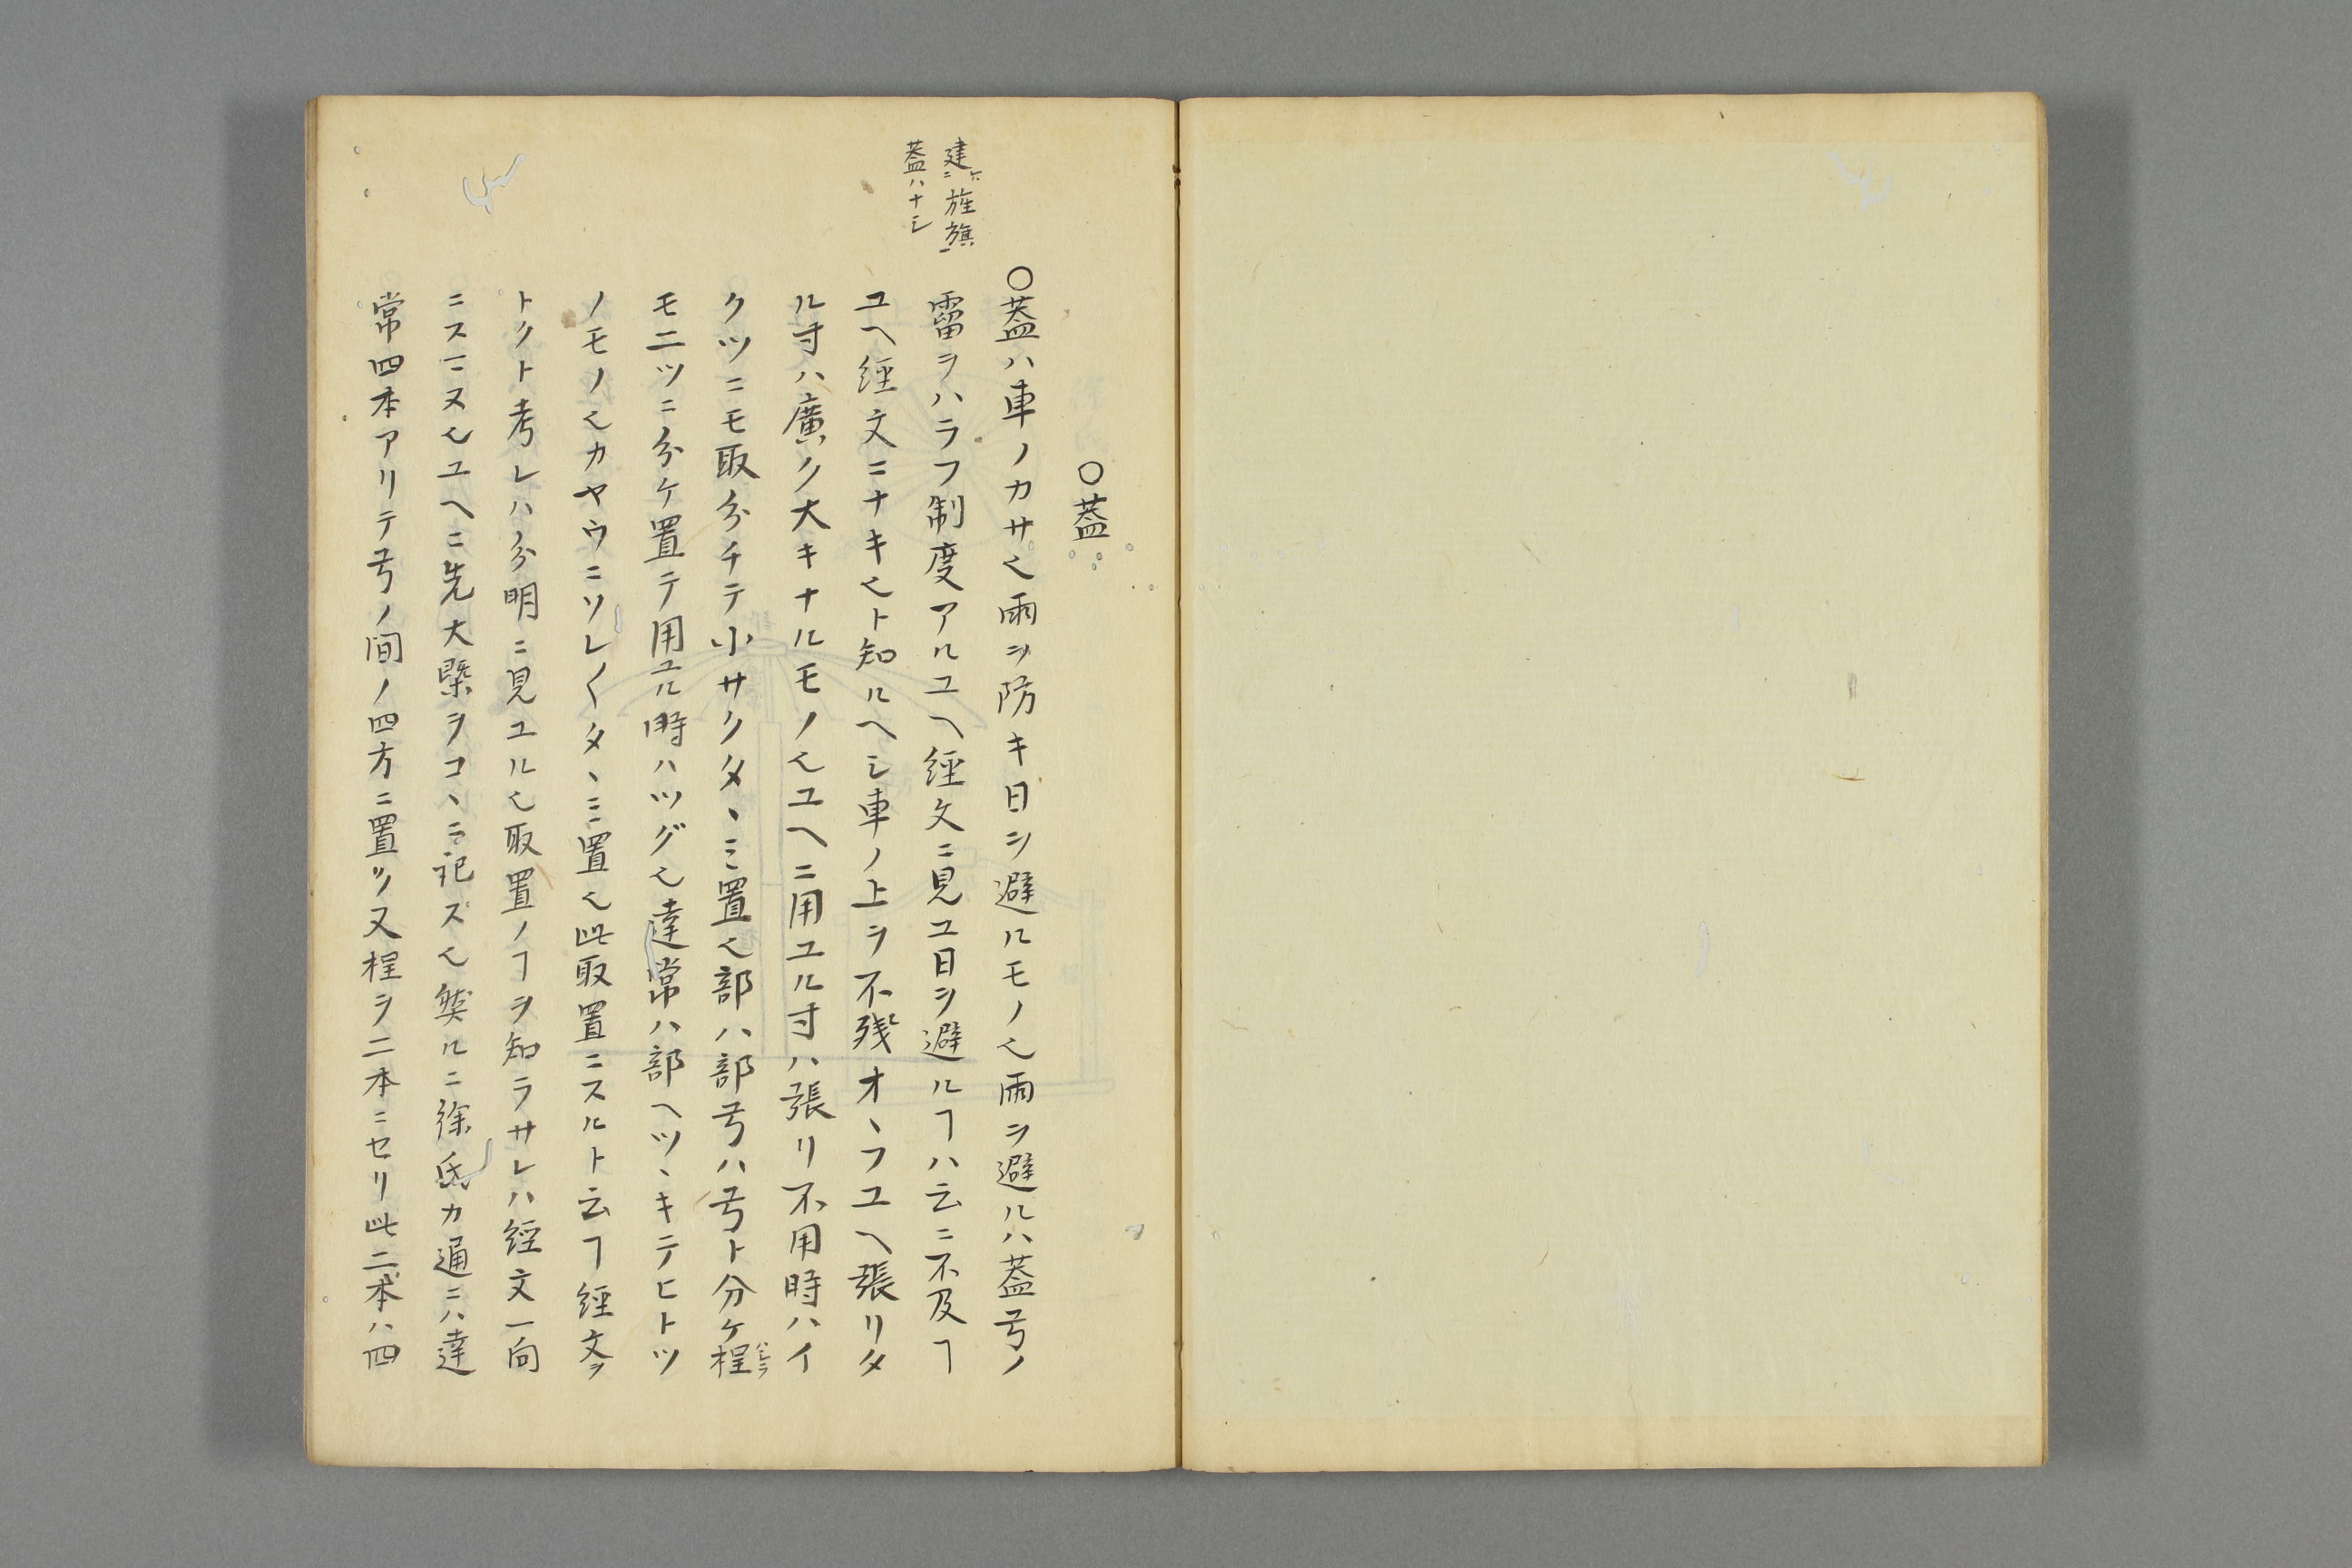 〇蓋
〇蓋ハ車ノカサ也雨ヲ防キ日ヲ避ルモノ也雨ヲ避ルハ蓋弓ノ
霤ヲハラフ制度アルユヘ經文ニ見ユ日ヲ避ルヿハ云ニ不及ヿ
ユヘ經文ニナキ也ト知ルヘシ車ノ上ヲ不残オヽフユヘ張リタ
ル寸ハ廣ク大キナルモノ也ユヘニ用ユル寸ハ張リ不用時ハイ
クツニモ取分チテ小サクタヽミ置也部ハ部弓ハ弓ト分ケ桯
モ二ツニ分ケ置テ用ユル時ハツグ也達常ハ部ヘツヽキテヒトツ
ノモノ也カヤウニソレ〳〵タヽミ置也此取置ニスルト云ヿ經文ヲ
トクト考レハ分明ニ見ユル也取置ノヿヲ知ラサレハ經文一向
ニスマヌ也ユヘニ先大槩ヲコヽニ記ス也然ルニ徐氏カ通ニハ達
常四本アリテ弓ノ間ノ四方ニ置ツ又桯ヲ二本ニセリ此二本ハ四
建ニ旌旗ヲ
蓋ハナシ